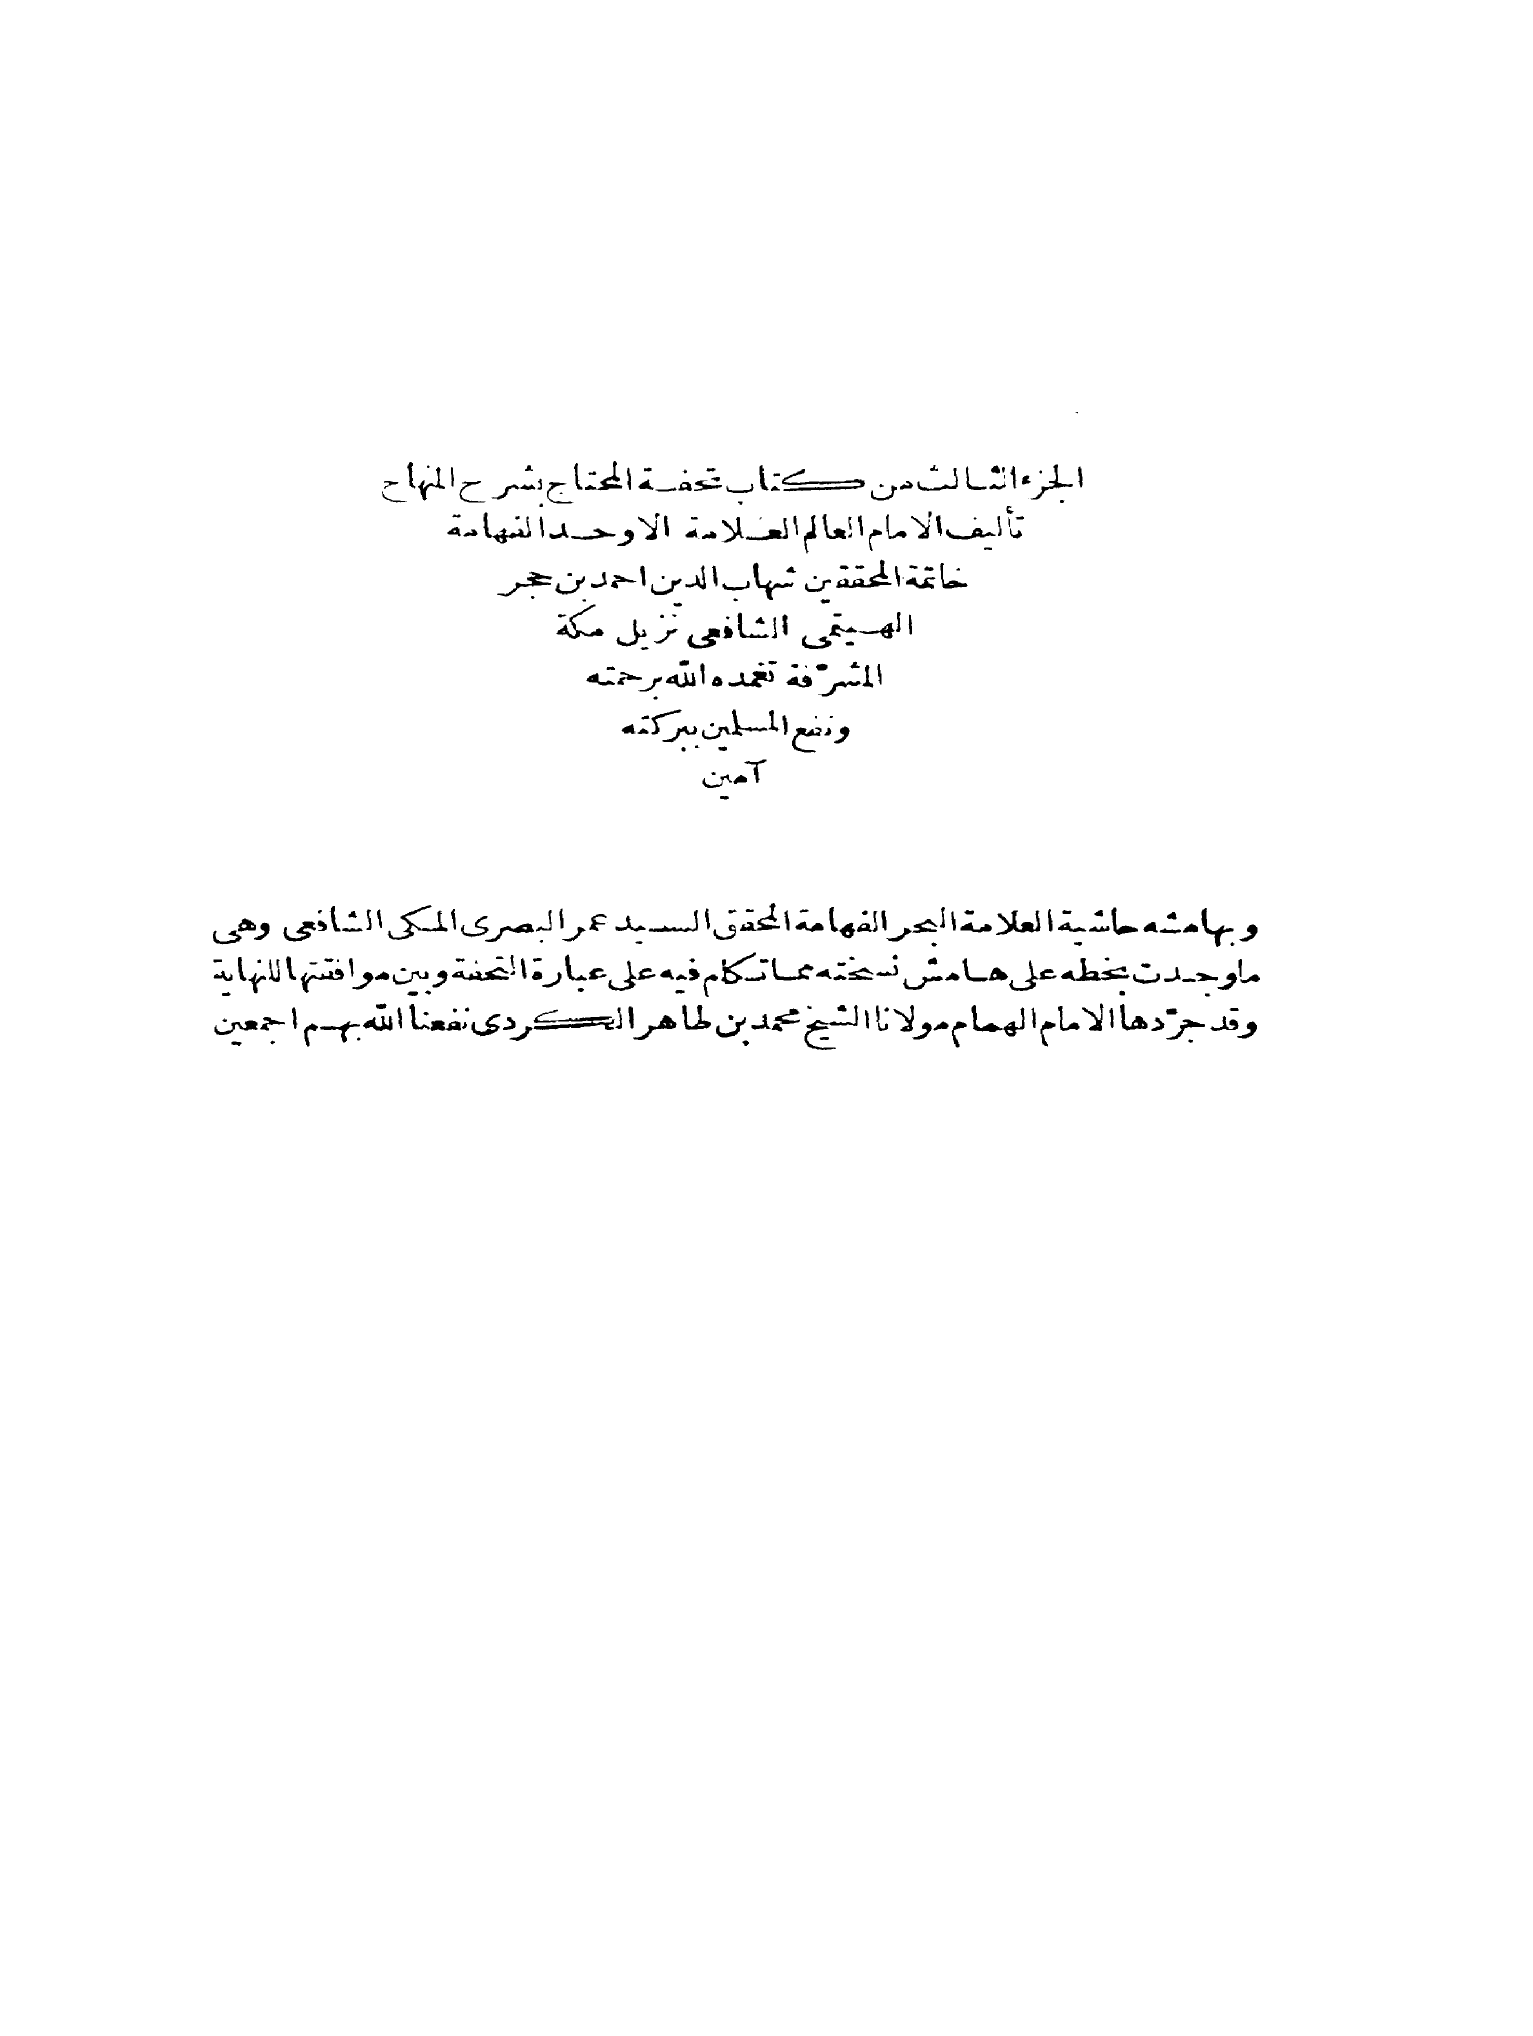 الجزء الثالث من كتاب تحفة المحتاج بشرح المنهاج
تأليف الامام العالم العلامة الاوحد الفهامة
خاتمة المحققين شهاب الدين احمد بن حجر
الهيتمى الشافعى نزيل مكة
المشرّفة تغمده الله برحمته
ونفع المسلمين ببركته
آمين
وبهامشه حاشية العلامة البحر الفهامة المحقق السيد عمر البصرى المكى الشافعى وهى
ما وجدت بخطه على هامش نسخته مما تكلم فيه على عبارة التحفة وبين موافقتها للنهاية
وقد جرّدها الامام الهمام مولانا الشيخ محمد بن طاهر الكردى نفعنا الله بهم اجمعين